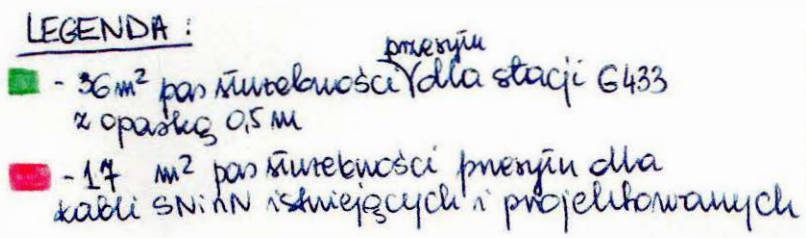 LEGENDA:
- 36 m² pas służebności przesyłu dla stacji G433
z opaską 0,5 m
- 17 m² pas służebności przesyłu dla
kabli SN i nN istniejących i projektowanych